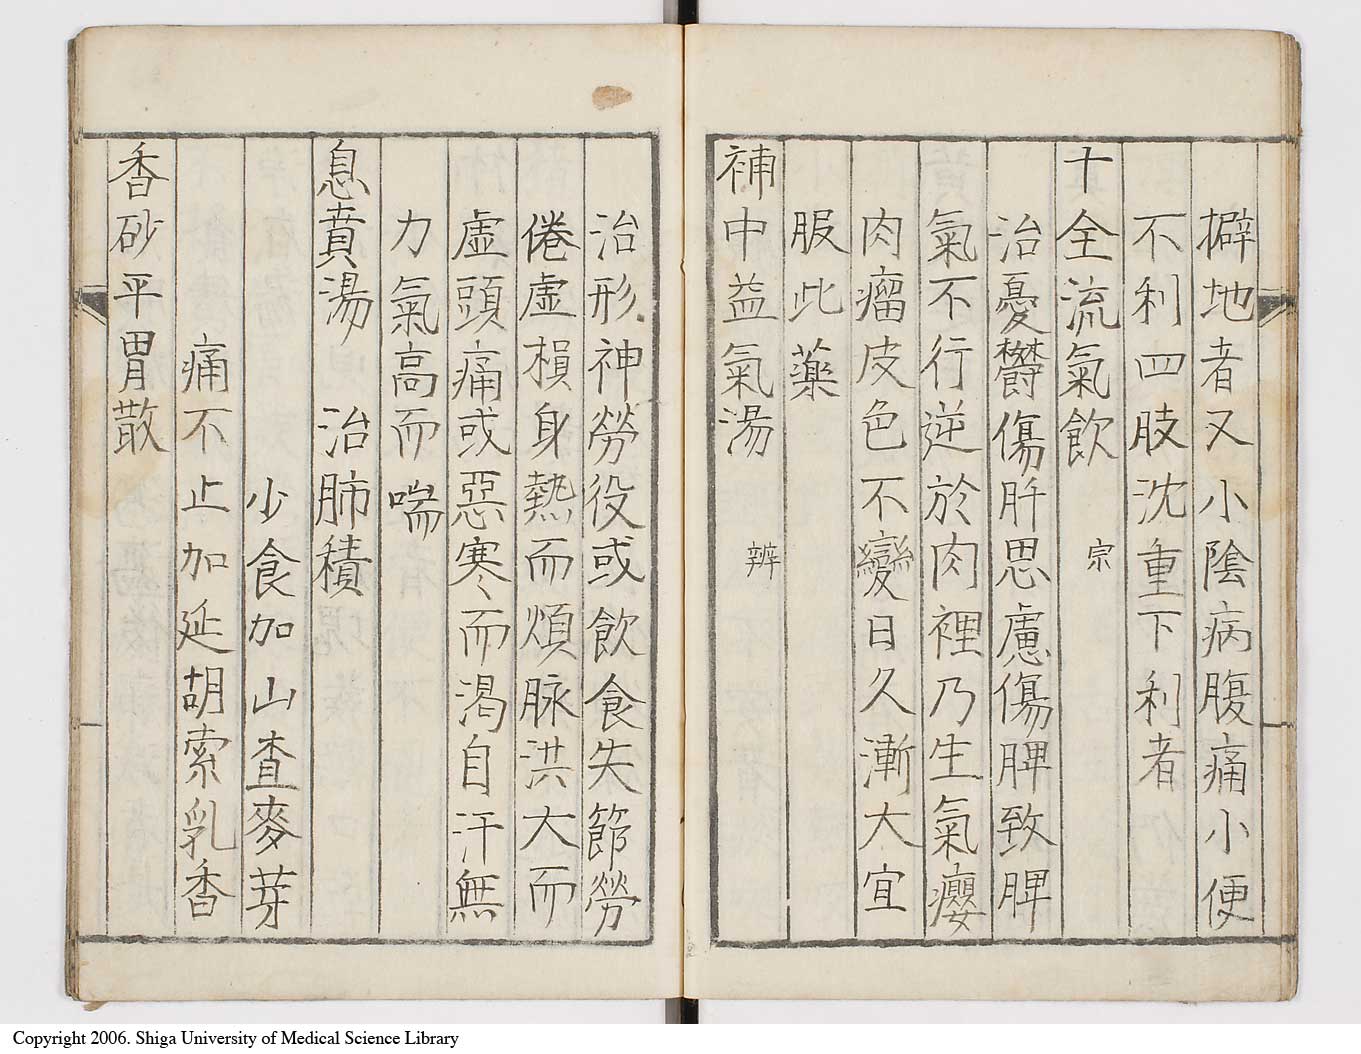 擗地者又小陰病腹痛小便
不利四肢沈重下利者
十全流氣飲 宗
治憂欝傷肝思慮傷脾致脾
氣不行逆於肉裡乃生氣癭
肉瘤皮色不變日久漸大宜
服此藥
補中益氣湯 辨
治形神勞役或飲食失節勞
倦虛損身熱而煩脉洪大而
虛頭痛或惡寒而渴自汗無
力氣高而喘
息賁湯 治肺積
少食加山查麥芽
痛不止加延胡索乳香
香砂平胃散
Copyright 2006. Shiga University of Medical Science Library